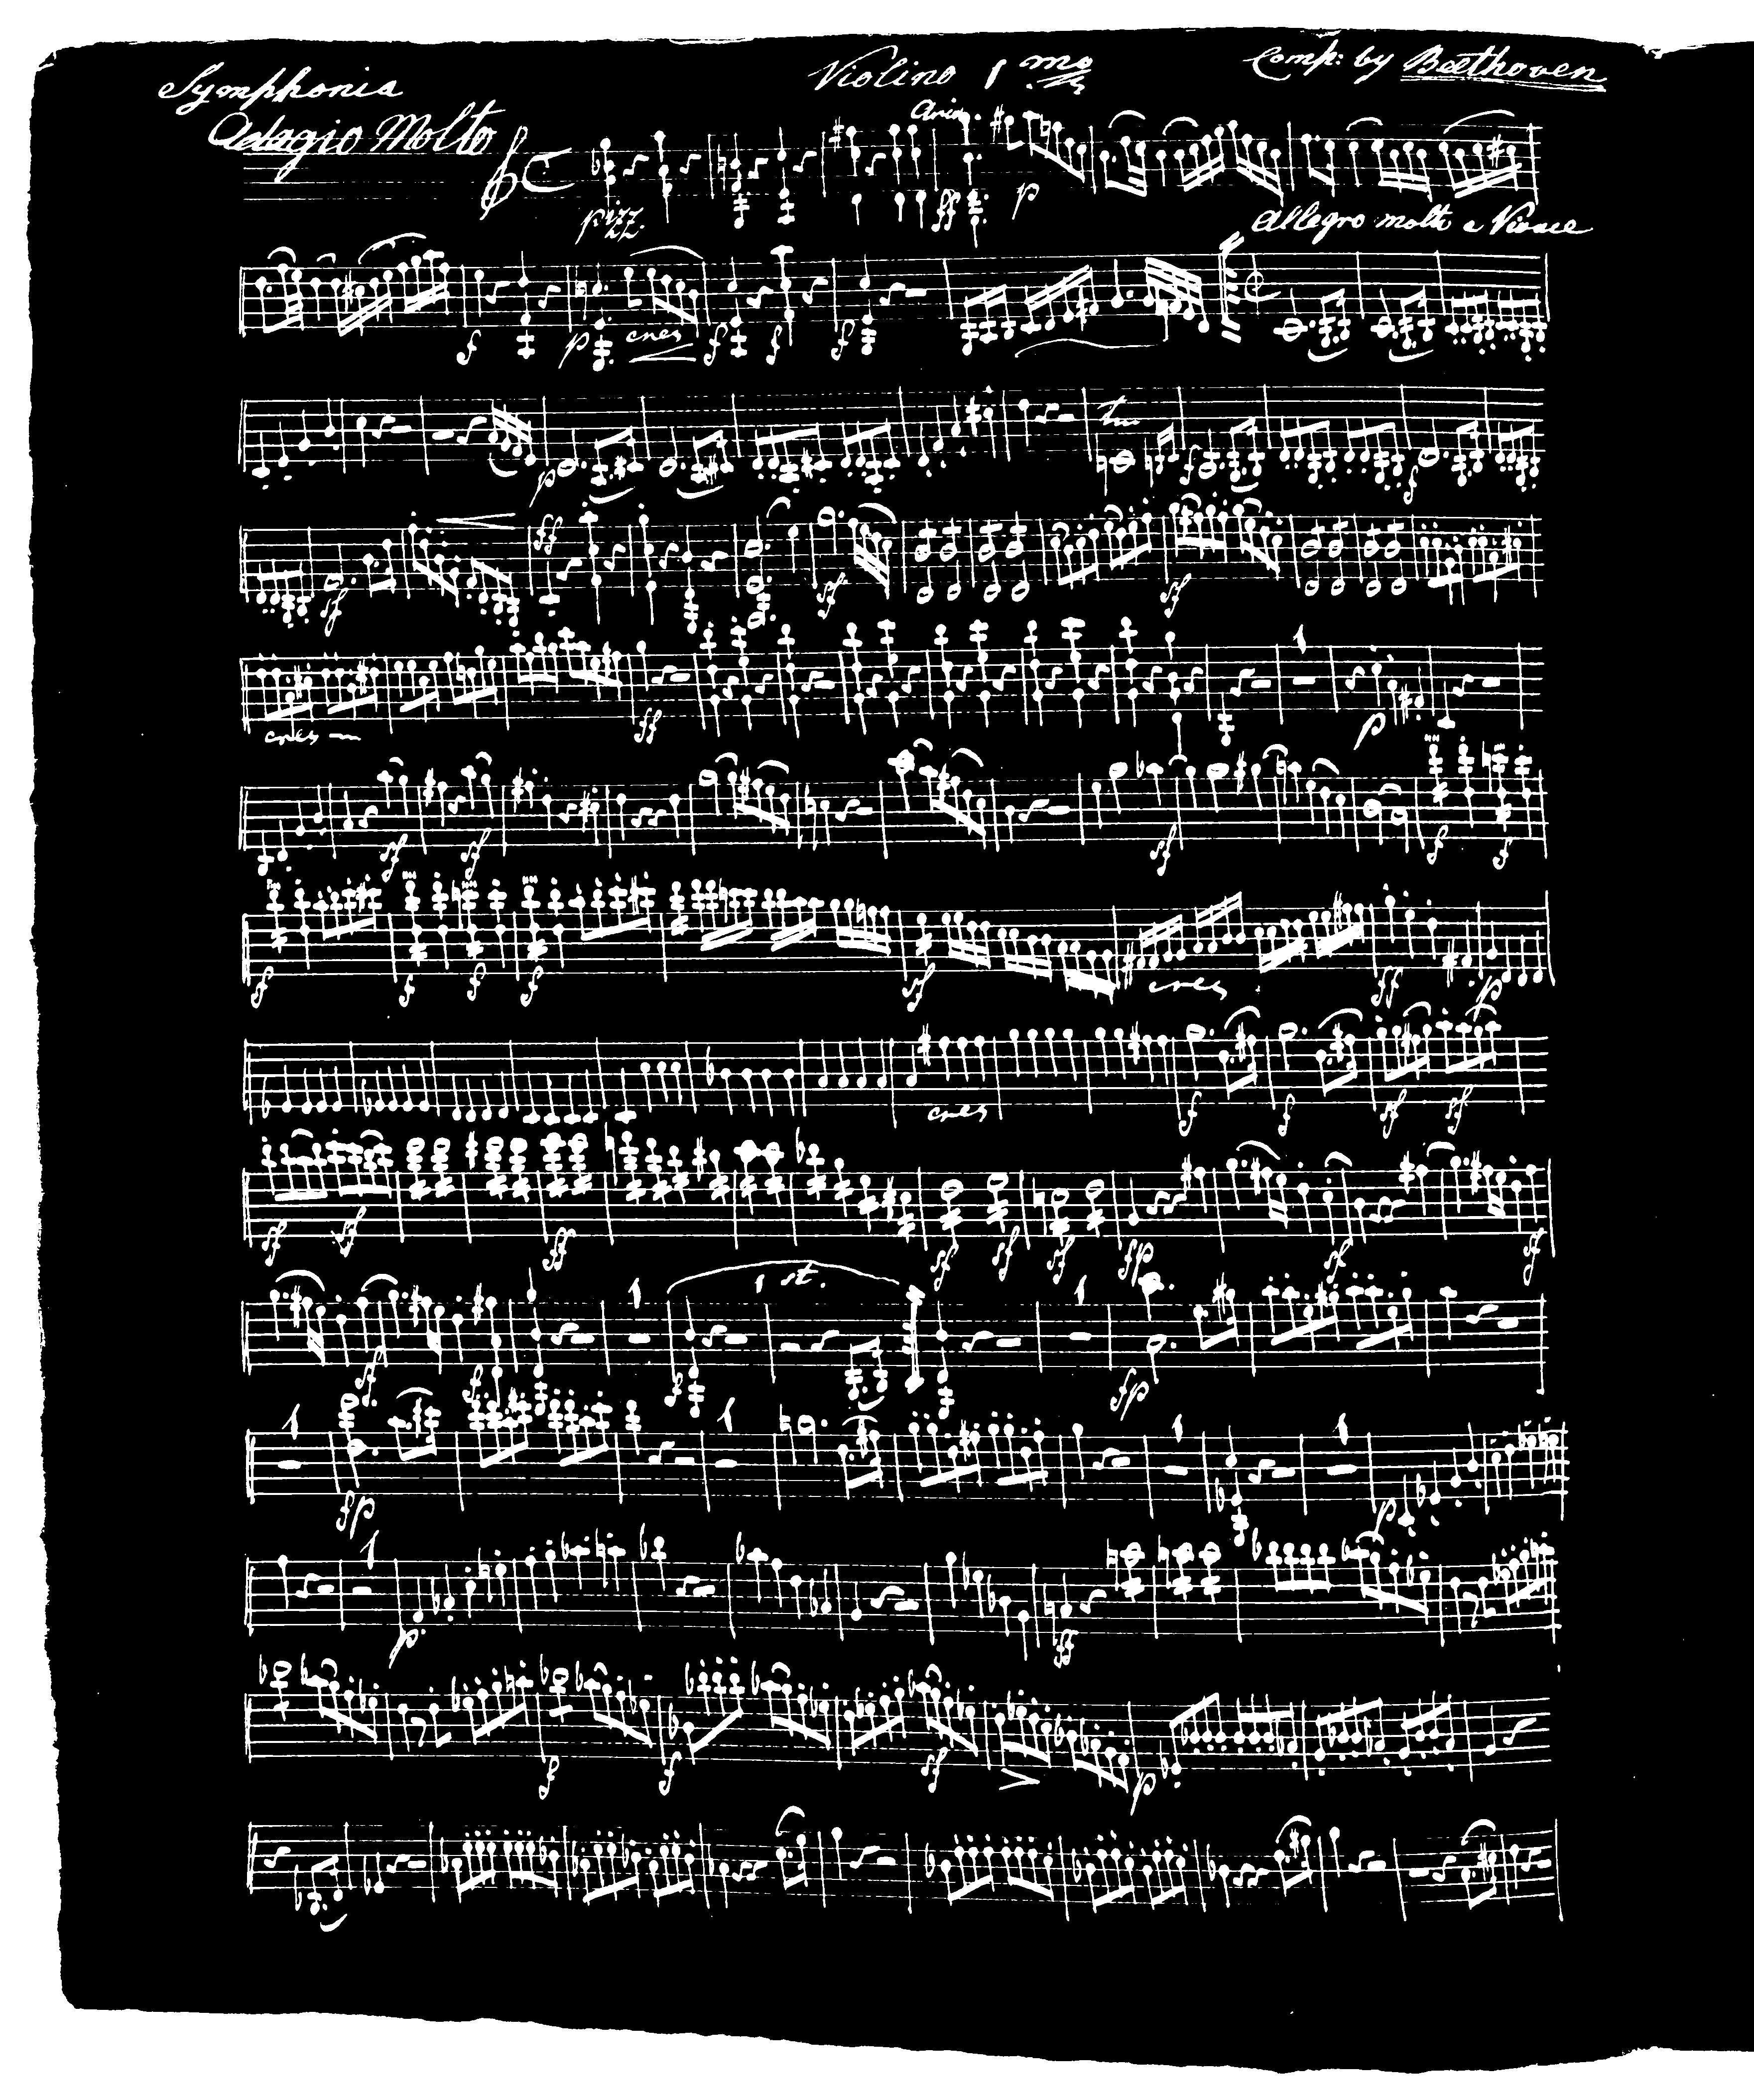 Symphonia Violino 1mo Comp: by Beethoven
Adagio Molto
pizz. ff p
Allegro molto e Vivace
f p cres f f f
p f f
sf ff sf sf
cres ff p
sf sf sf f f
f f f f sf cres ff p
cres f f sf sf
sf sf ff sf sf sf fp sf sf
1 1 st. 1
sf f f fp
1 1 1 1
fp p
1
p. ff
f f sf p